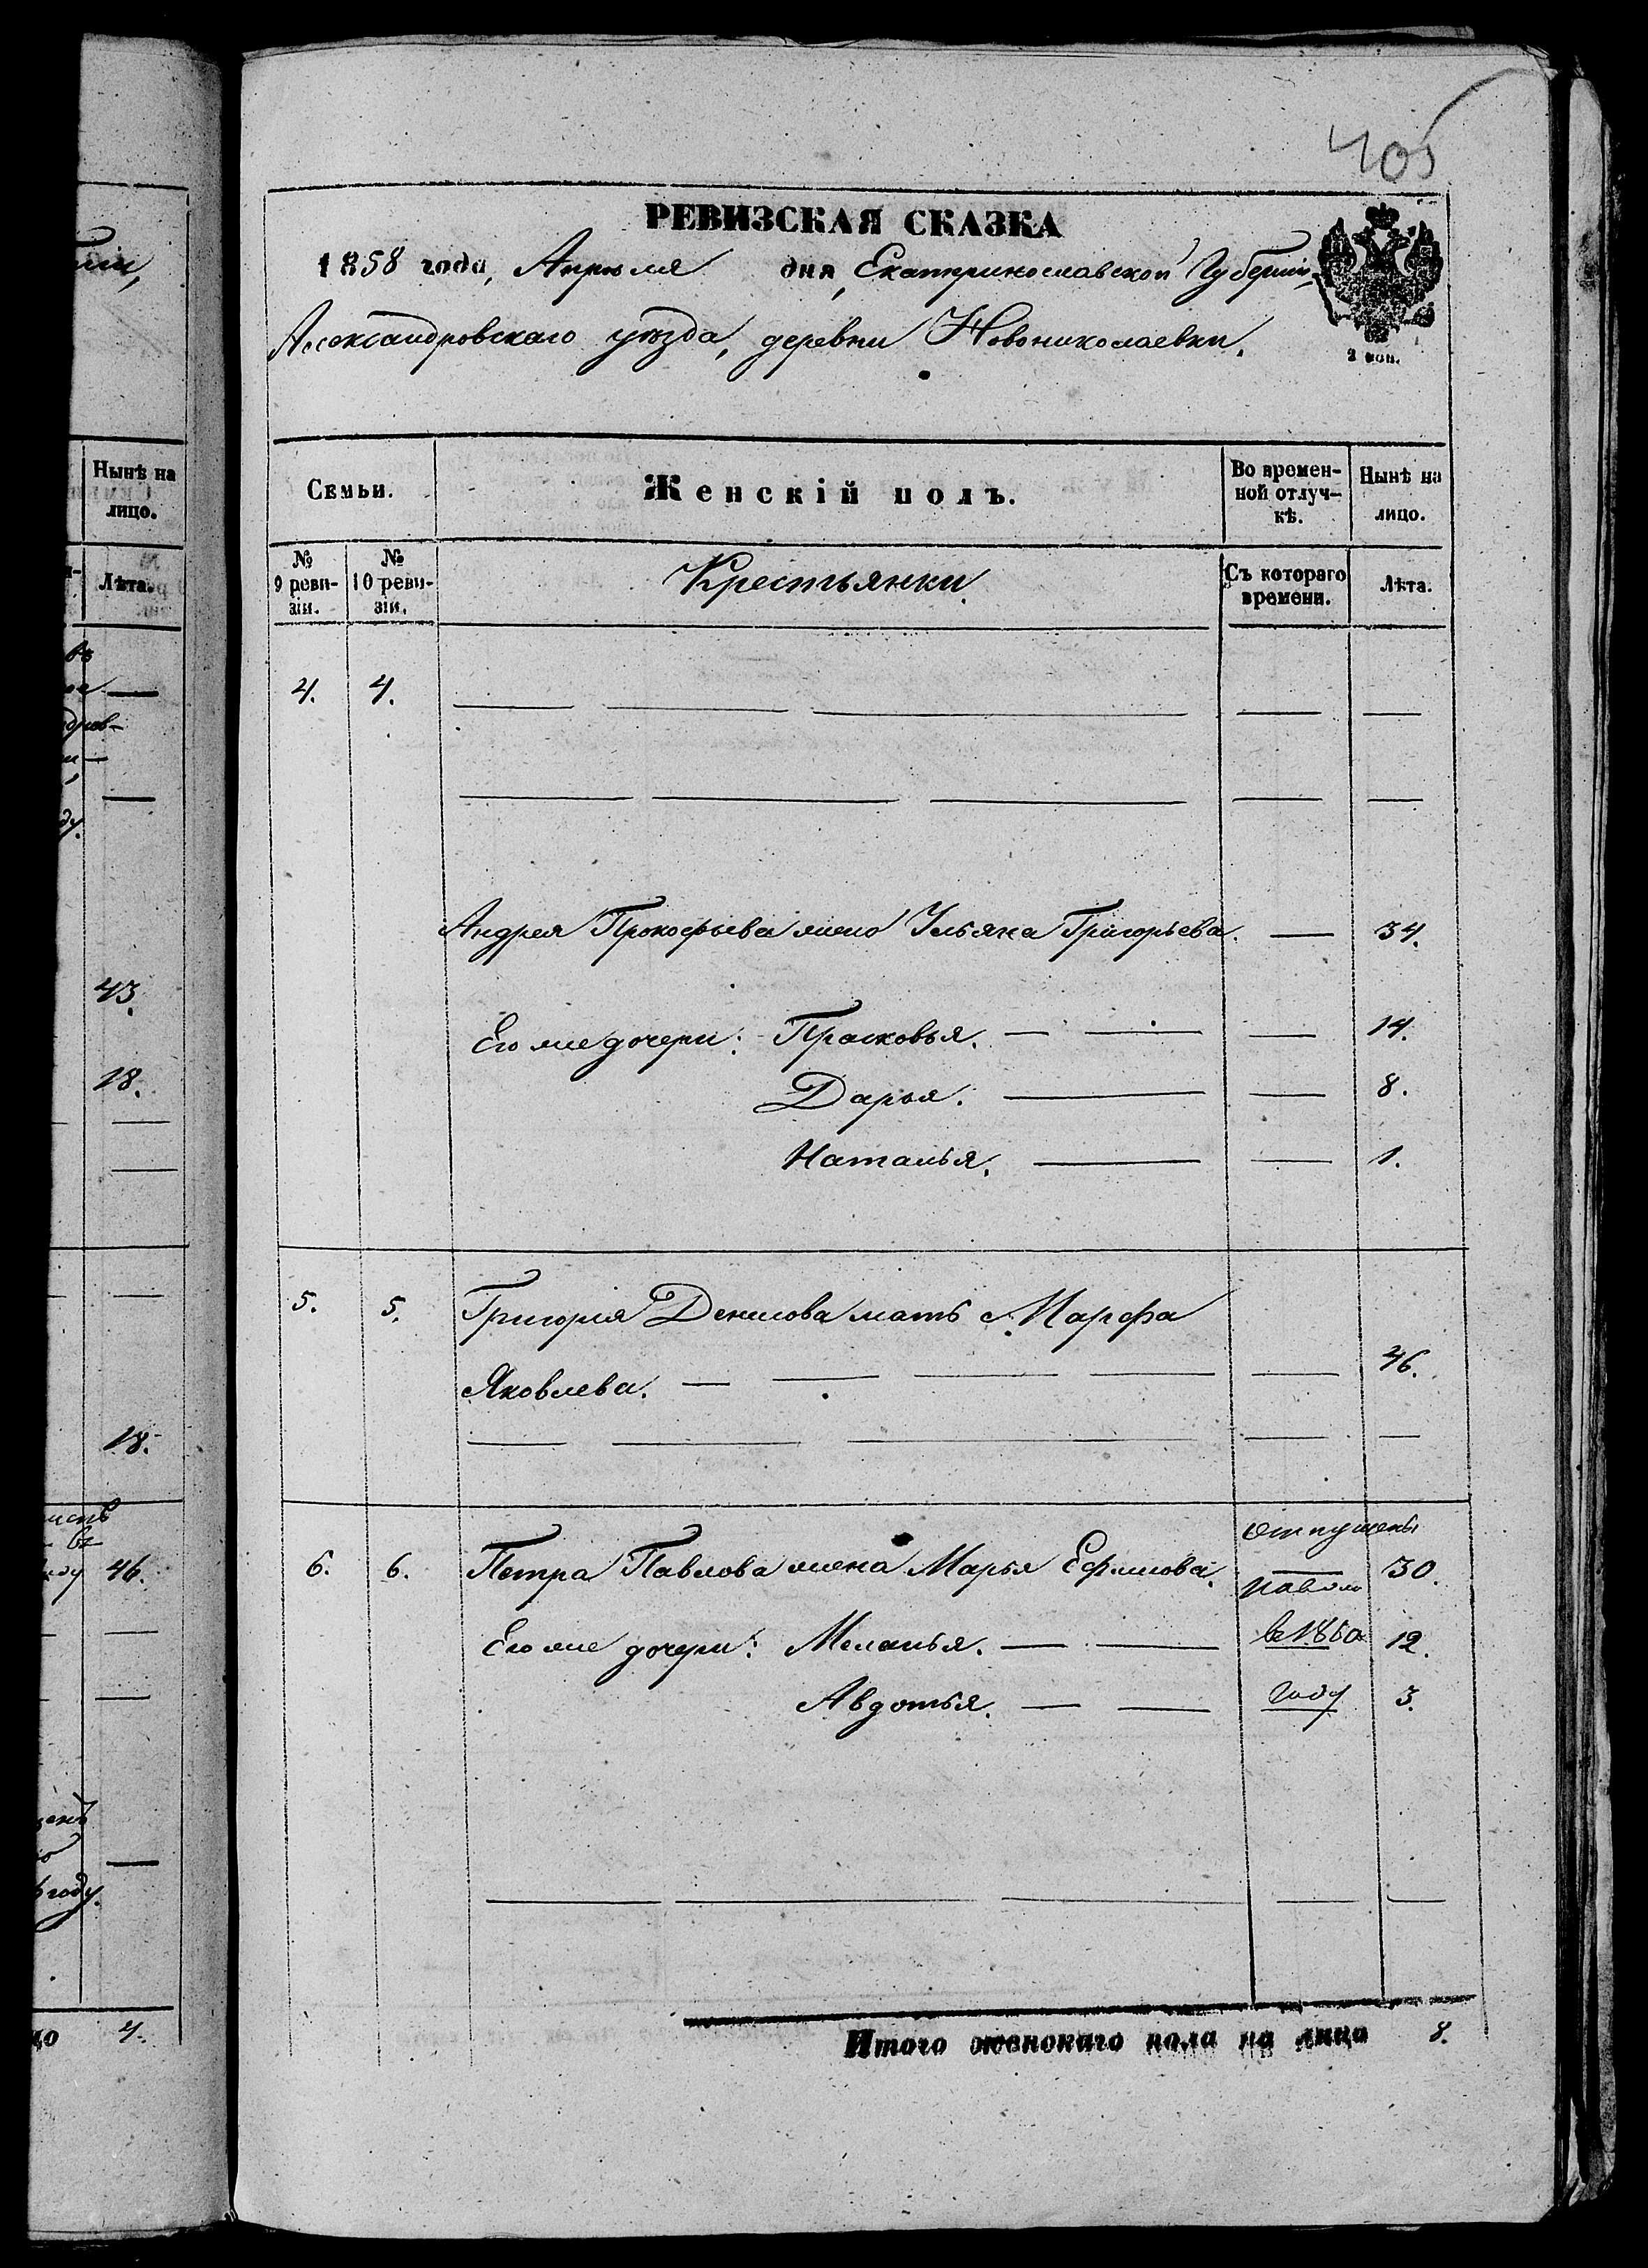 405
РЕВИЗСКАЯ СКАЗКА
1858 года, Апреля дня, Екатеринославской Губерніи,
Александровскаго уѣзда, деревни Новониколаевки.
2 коп.
Семьи. Женскій полъ. Во времен-
ной отлуч-
кѣ. Нынѣ на
лицо.
№
9 реви-
зіи. №
10 реви-
зіи. Крестьянки. Съ котораго
времени. Лѣта.
4. 4.
Андрея Прокофьева жена Ульяна Григорьева. 34.
Его же дочери: Прасковья. 14.
Дарья. 8.
Наталья. 1.
5. 5. Григорія Денисова мать Марфа
Яковлева. 46.
6. 6. Петра Павлова жена Марья Ефимова. отпущены 30.
на волю
Его же дочери: Меланья. в 1850 12.
Авдотья. году 3.
Итого женскаго пола на лицо 8.
Нынѣ на
лицо.
Лѣта.
43.
18.
18.
46.
году.
4.